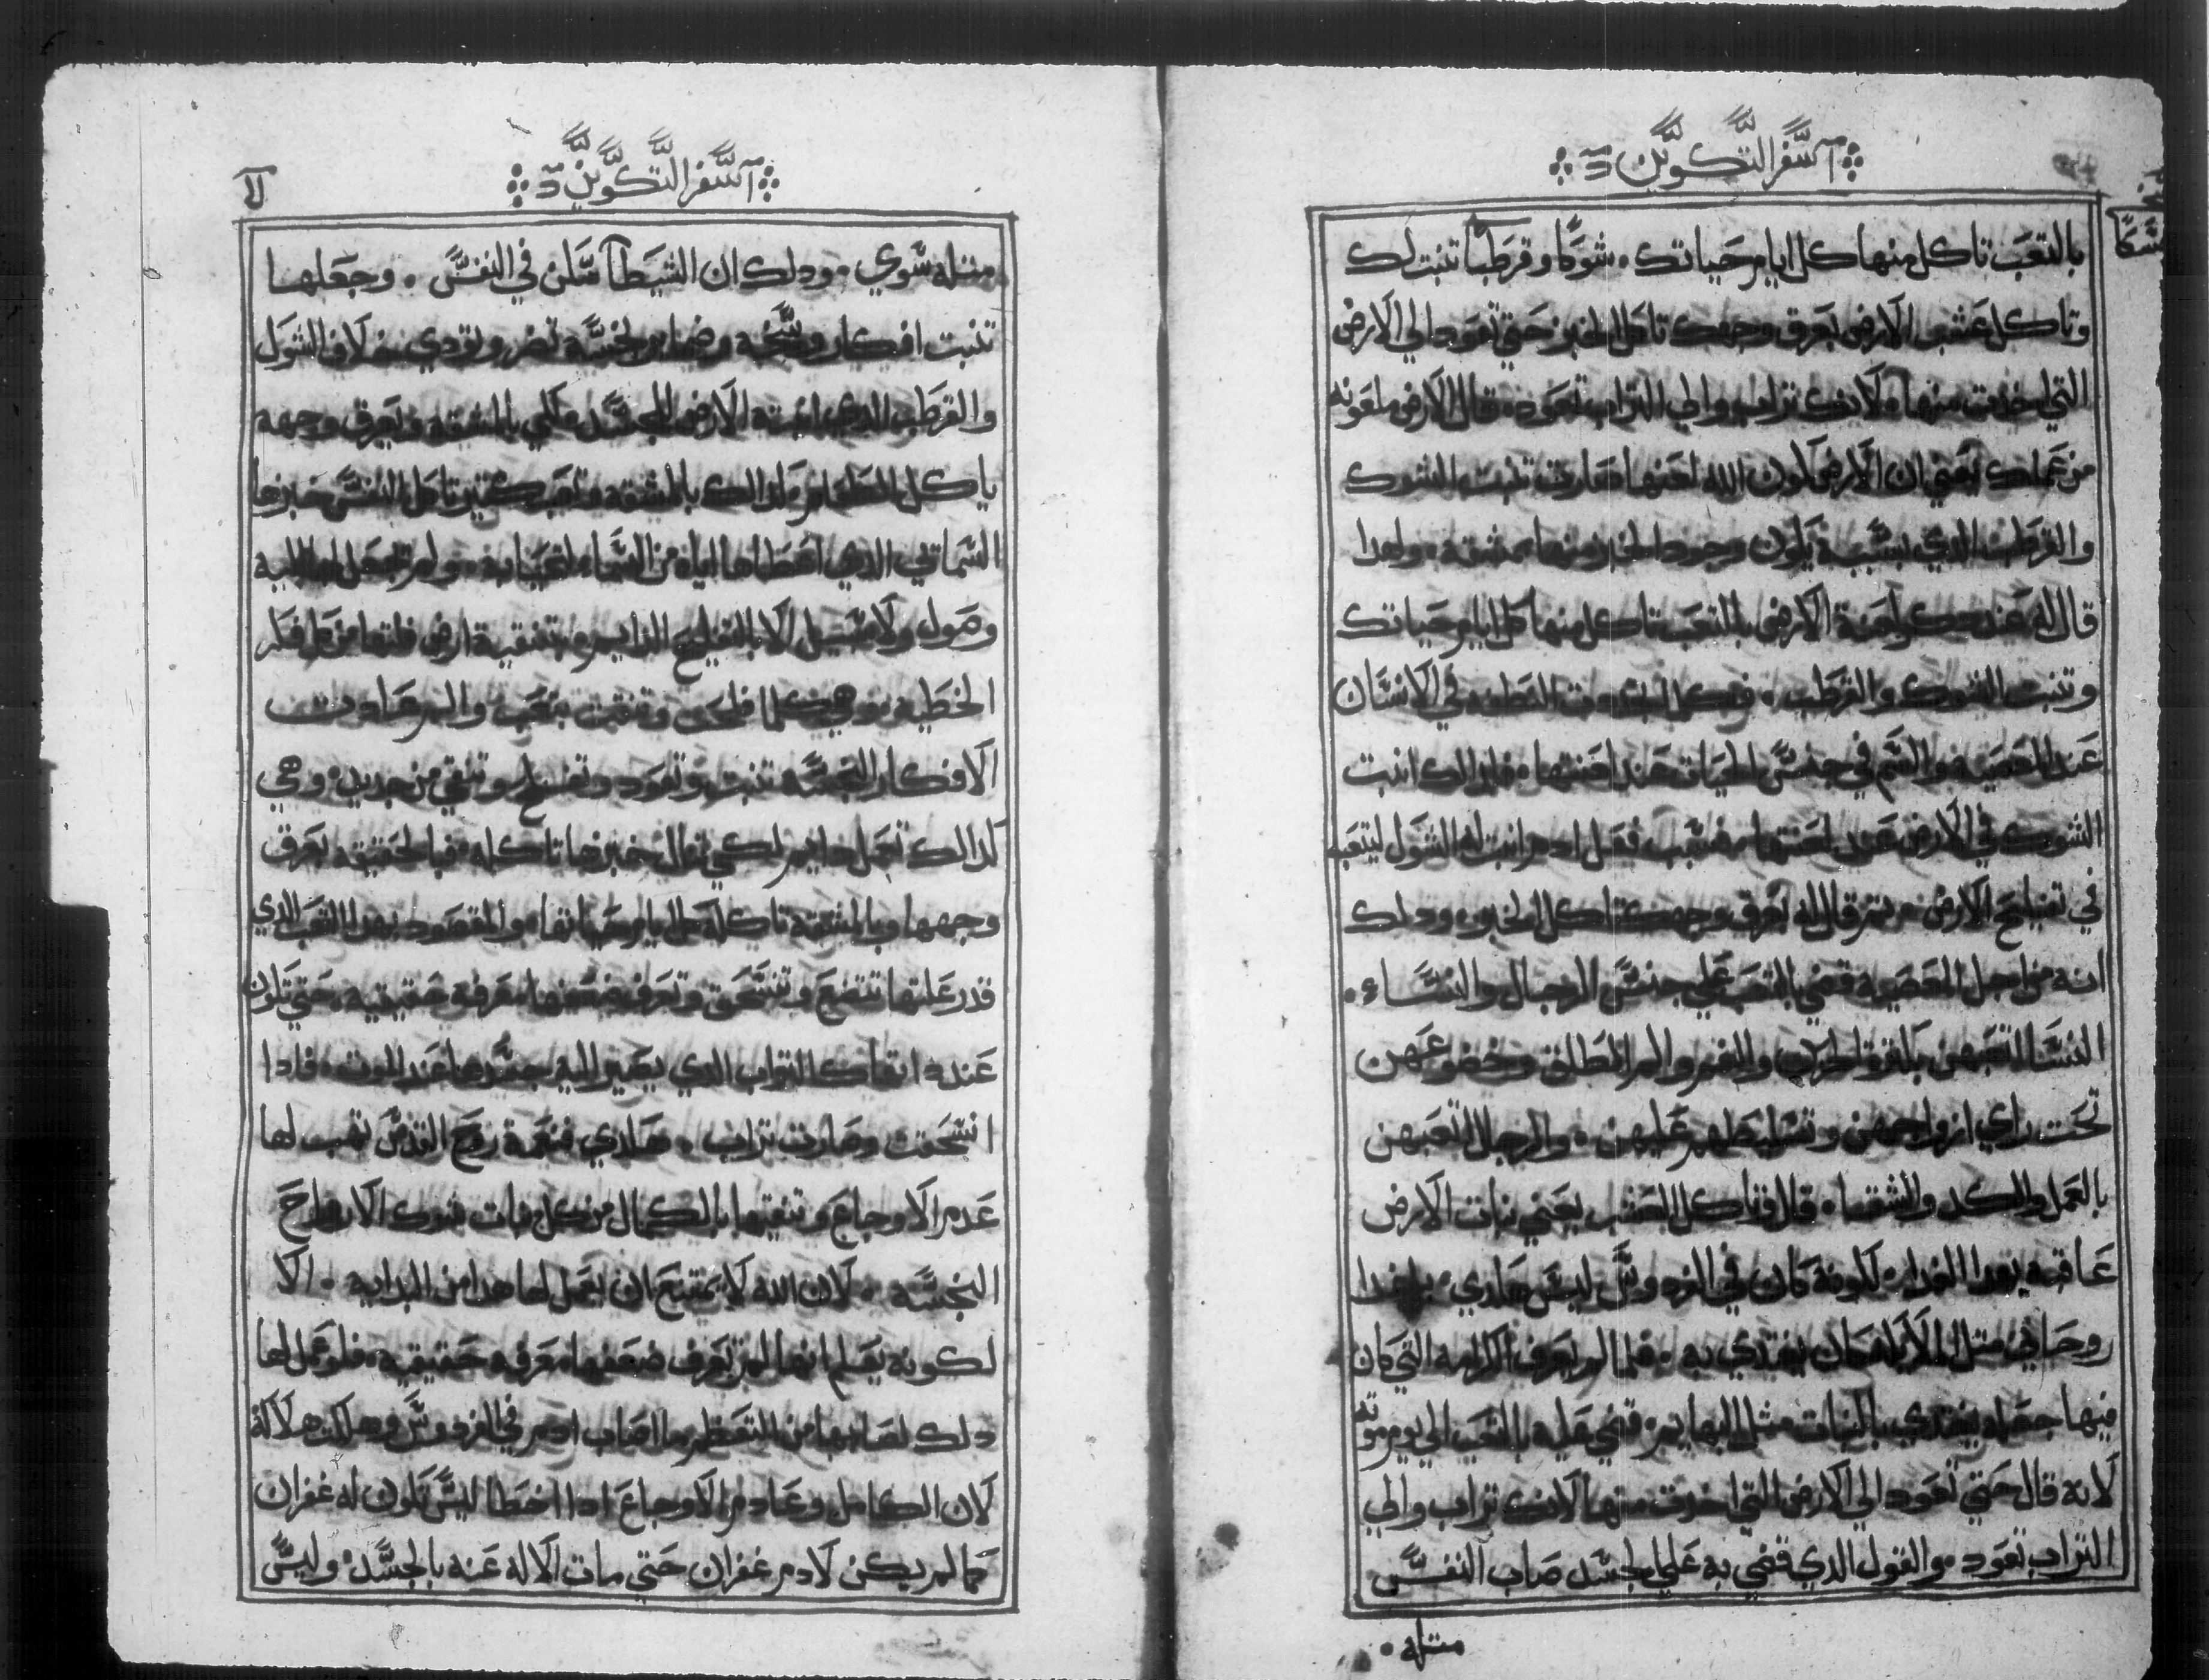 سفر التكوين
بالتعب تاكل منها كل ايام حياتك. شوكا وقرطبا تنبت لك
وتاكل عشب الارض بعرق وجهك تاكل الخبز حتي تعود الي الارض
التي اخدت منها. لانك تراب والي التراب تعود. قال الارض ملعونه
من عملك يعني ان الارض لكون الله لعنها صارت تنبت الشوك
والقرطب الدي بسببه يكون وجود الخبز منها بمشقه. ولهدا
قال له عند لعنة الارض بالتعب تاكل منها كل ايام حياتك
وتنبت الشوك والقرطب. في الانسان
عند المعصيه والسم في جنس الحيات عند لعنتها. فلدالك انبت
الشوك في الارض عند لعنتها. فبسبب فعل ادم انبت له الشوك ليتعب
في تفليح الارض. تم قال له بعرق وجهك تاكل الخبز. ودلك
انه من اجل المعصيه قضي بالتعب علي جنس الرجال والنساء.
النساء اتعبهن بكترة الحزن والغم والم الطلق وخضوعهن
تحت راي ازواجهن وتسليطهم عليهن. والرجال اتعبهن
بالعمل والكد والشقا. قال وتاكل العشب يعني نبات الارض
عاقبه بهدا الغدا. لكونه كان في الفردوس ليس هكدي. بل غدا
روحاني متل الملايكه كان يغتدي به. فلما لم يعرف الكرامه التي كان
فيها جعله يغتدي بالنبات متل البهايم. قضي عليه بالتعب الي يوم موته
لانه قال حتي تعود الي الارض التي اخدت منها لانك تراب والي
التراب تعود. والقول الدي قضي به علي الجسد صاب النفس
متله.
سفر التكوين
متله سوي. ودلك ان الشيطان سكن في النفس. وجعلها
تنبت افكار وسخه وضماير نجسه تضر وتودي خلاف الشوك
والقرطب الدي انبته الارض للجسد. لكي بالمشقه وبعرق وجهه
ياكل الطعام. كدالك بالمشقه وتعب كتير تاكل النفس خبزها
السماتي الدي اعطاها اياه من السماء. ولم تجعل لها اليه
وصول ولا سبيل الا بالتفليح الدايم وبتنقية ارض قلبها من كل فكر
الخطيه. وهي كلما فلحت وتنقت بتعب والم عادت
الافكار النجسه تنبت. وتعود وتفلح وتنقي من جديد. وهي
كدالك تعمل دايم لكي تنال خبزها تاكله. فبالحقيقه بعرق
وجهها وبالمشقه تاكله كل ايام حياتها. والمقصود بهدا التعب الدي
قدر عليها تتضع وتنسحق وتعرف ضعفها معرفه حقيقيه. حتي تكون
عند داتها كالتراب الدي يصير اليه جسدها عند الموت. فادا
انسحقت وصارت تراب. هكدي فنعمة روح القدس تهب لها
عدم الاوجاع وتنقيها بالكمال من كل نبات شوك الارواح
النجسه. لان الله لا يمتنع ان يعمل لها هدا من البدايه. الا
لكونه يعلم انها لم تعرف ضعفها معرفه حقيقيه. فلو عمل لها
دلك لصابها من التعظم ما اصاب ادم في الفردوس وهلكت هلاكه
لان الكامل وعادم الاوجاع ادا اخطا ليس يكون له غفران
كما لم يكن لادم غفران حتي مات الاله عنه بالجسد. وليس